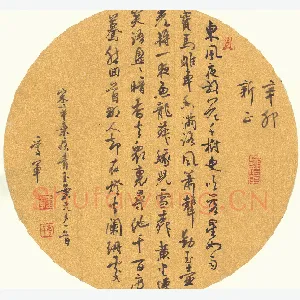 東風夜放花千樹更吹落星如雨
寶馬雕車香滿路鳳簫聲動玉壺
光轉一夜魚龍舞蛾兒雪柳黃金縷
笑語盈盈暗香去衆裏尋他千百度
驀然回首那人却在燈火闌珊處
宋辛棄疾青玉案元夕一首
辛卯
新正
Shufawang.CN